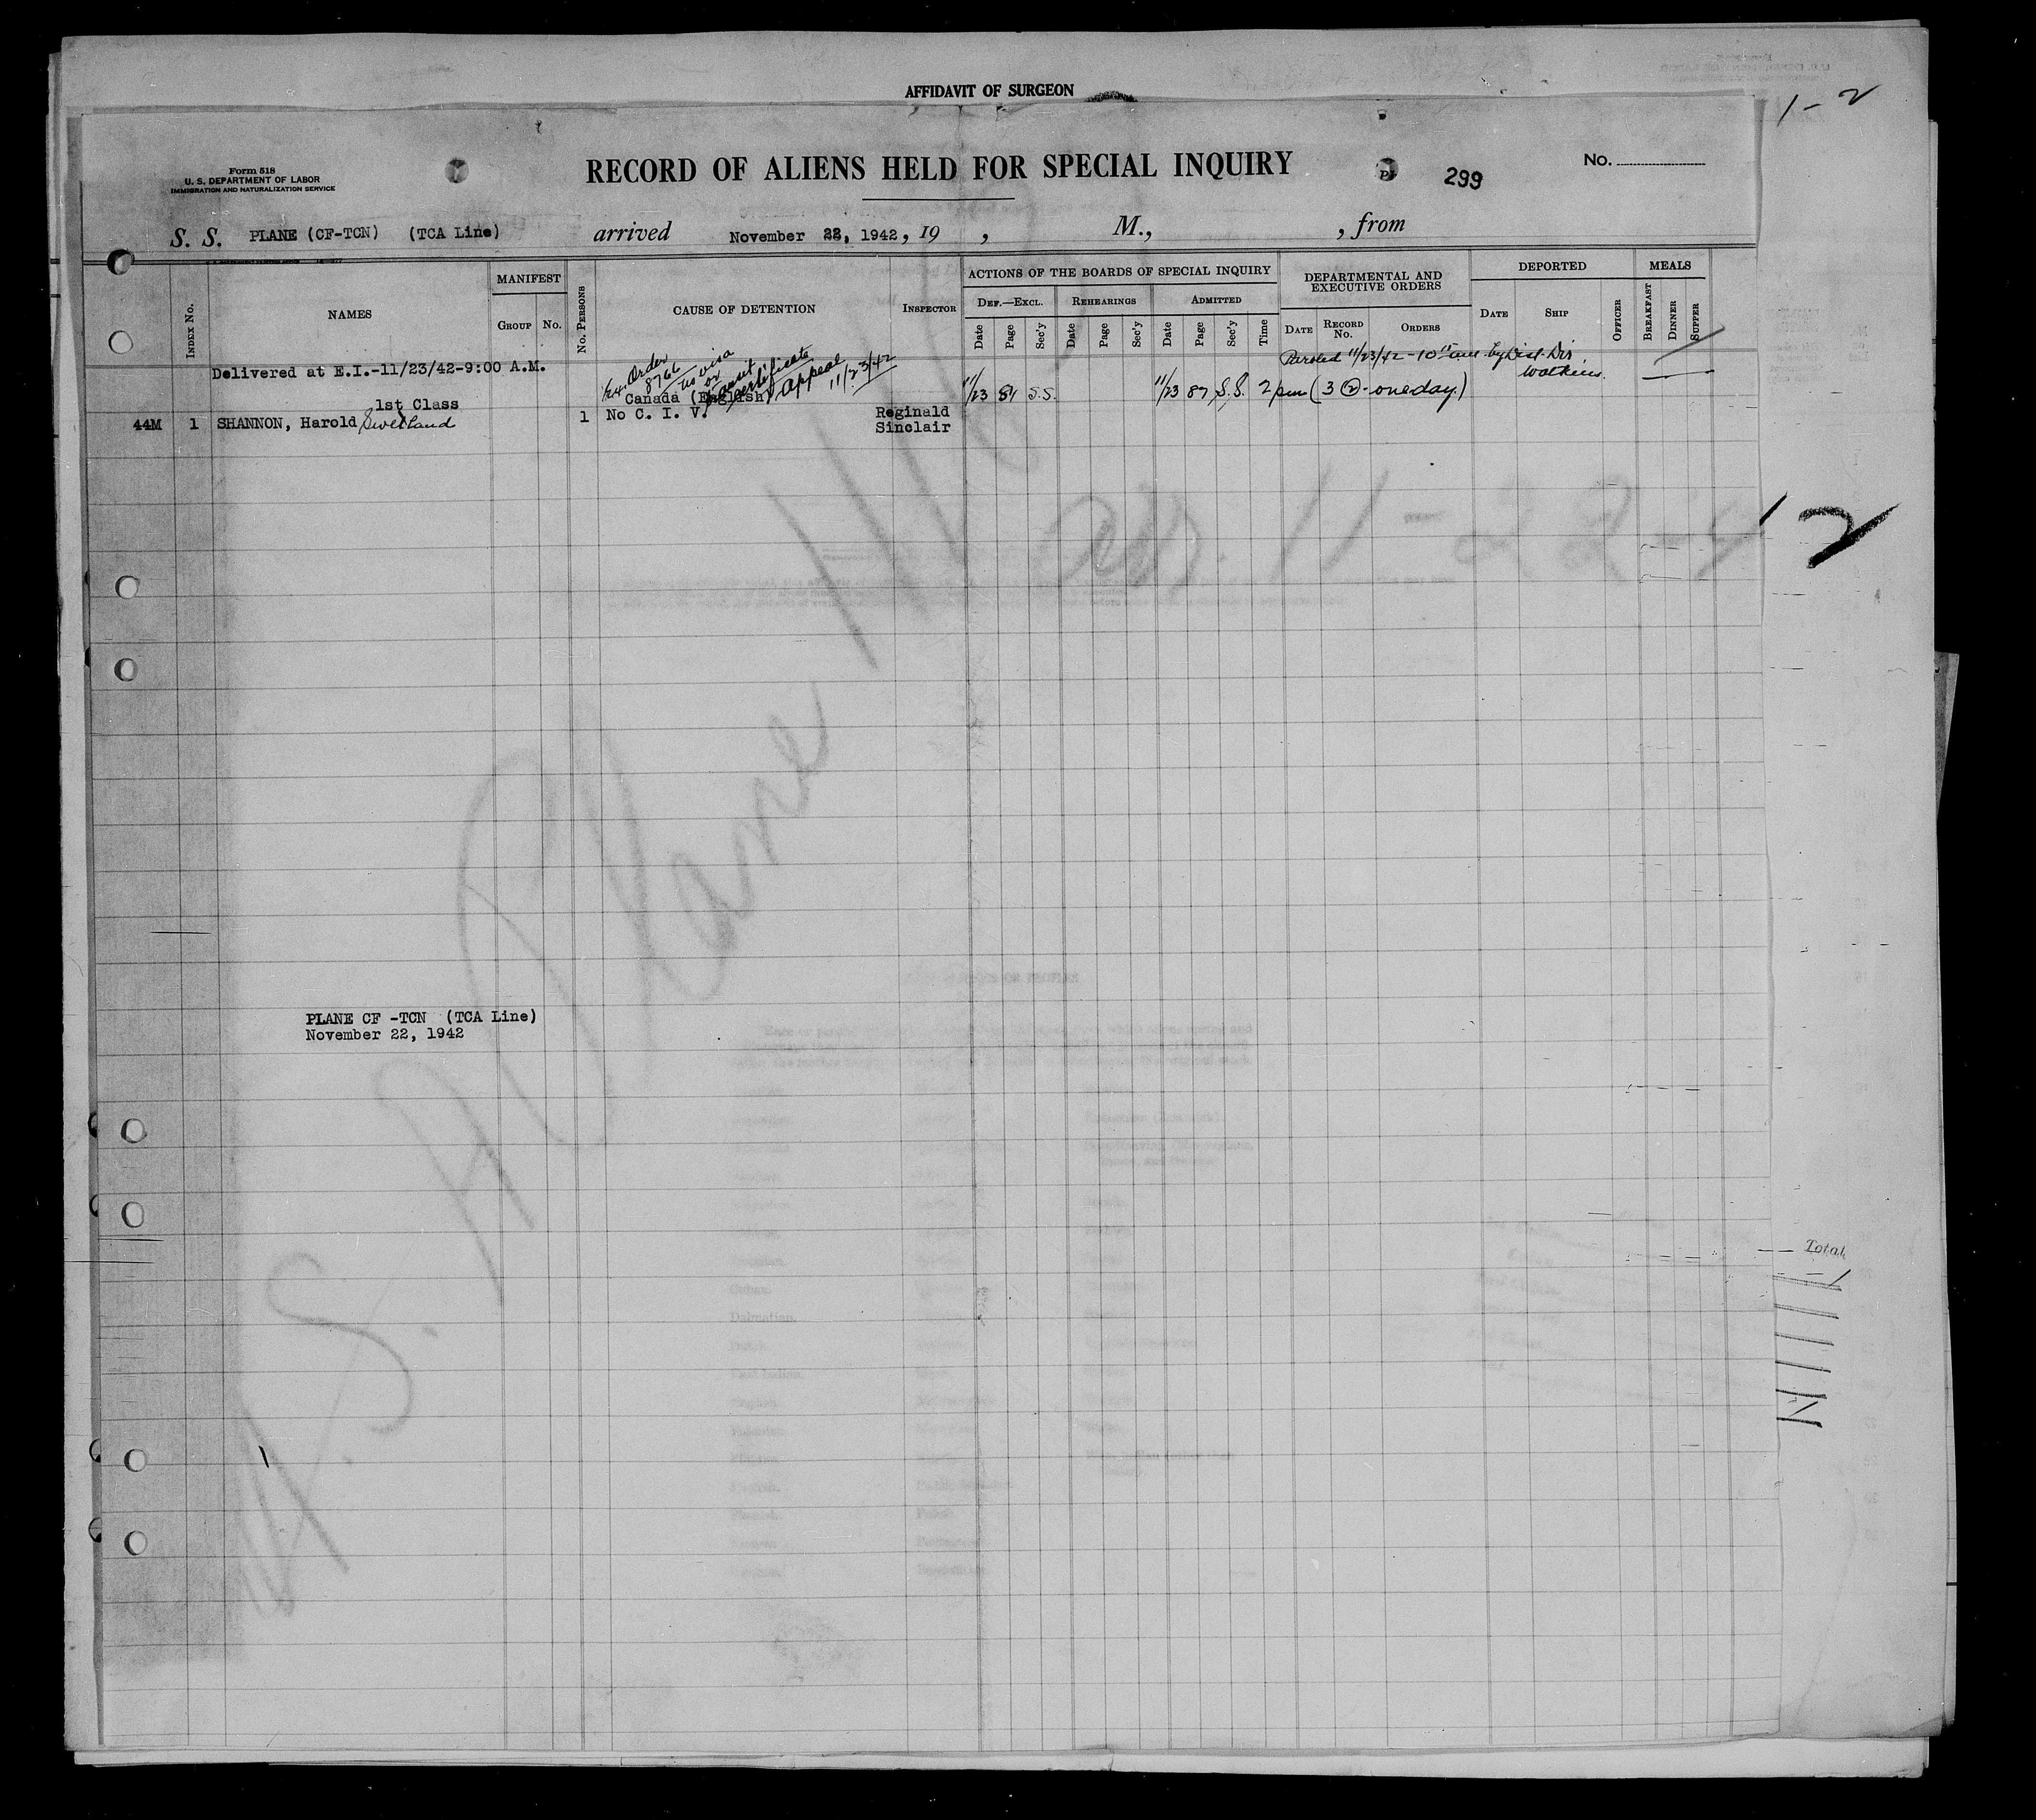 AFFIDAVIT OF SURGEON
1-2
Form 518
U. S. DEPARTMENT OF LABOR
IMMIGRATION AND NATURALIZATION SERVICE
RECORD OF ALIENS HELD FOR SPECIAL INQUIRY
299
No.
S. S. PLANE (CF-TCN) (TCA Line) arrived November 22, 1942, 19 , M., , from
INDEX No.
NAMES
MANIFEST
GROUP No.
No. PERSONS
CAUSE OF DETENTION
INSPECTOR
ACTIONS OF THE BOARDS OF SPECIAL INQUIRY
DEF.—EXCL. REHEARINGS ADMITTED
Date Page Sec'y Date Page Sec'y Date Page Sec'y Time
DEPARTMENTAL AND
EXECUTIVE ORDERS
DATE RECORD No. ORDERS
DEPORTED
DATE SHIP OFFICER
MEALS
BREAKFAST DINNER SUPPER
Delivered at E.I.-11/23/42-9:00 A.M.
Ex. Order
8766
no visa
or
transit
certificate
Appeal
11/23/42
Paroled 11/23/42 - 10 am by Dist. Dir.
Watkins.
1st Class
Canada (English)
11/23 81 S.S.
11/23 87 S.S. 2 pm (3 2 - one day.)
44M 1 SHANNON, Harold Swetland 1 No C. I. V. Reginald
Sinclair
arr. 11-22-4
2
H. S. A Plane
PLANE CF -TCN (TCA Line)
November 22, 1942
Total